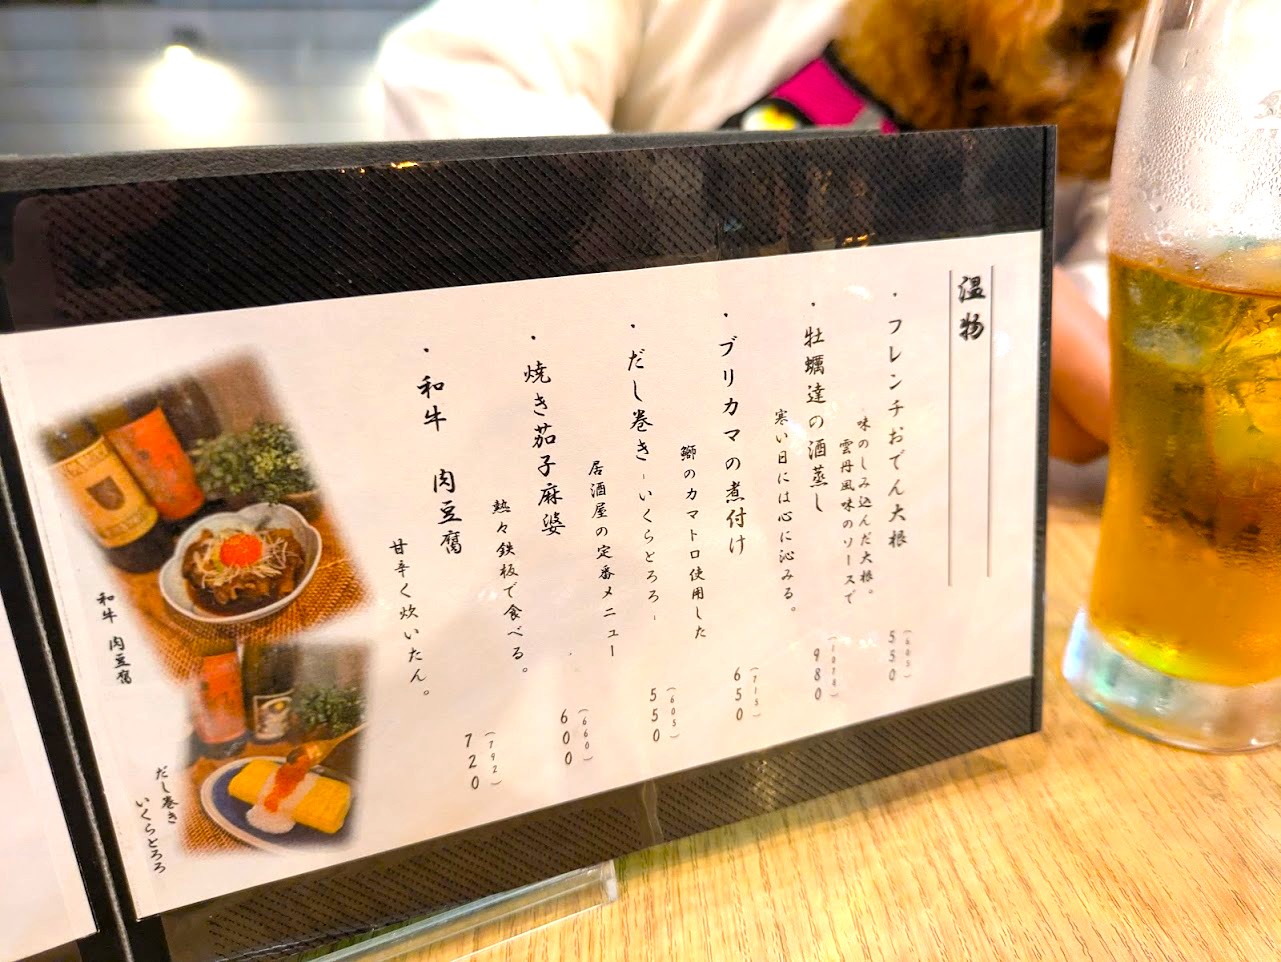 温物
・フレンチおでん大根
味のしみ込んだ大根。
雲丹風味のソースで
(605)
550
・牡蠣達の酒蒸し
寒い日には心に沁みる。
(1078)
980
・ブリカマの煮付け
鰤のカマトロ使用した
(715)
650
・だし巻き-いくらとろろ-
居酒屋の定番メニュー
(605)
550
・焼き茄子麻婆
熱々鉄板で食べる。
(660)
600
・和牛 肉豆腐
甘辛く炊いたん。
(792)
720
和牛 肉豆腐
だし巻き
いくらとろろ